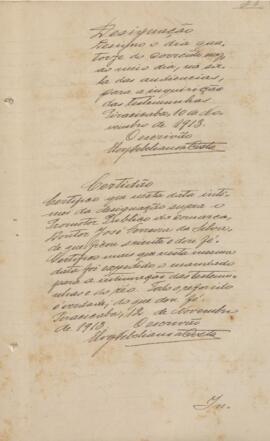 Designação
Designo o dia qua-
torze do corrente mez
ao meio dia, na sa-
la das audiencias,
para a inquirição
das testemunhas
Piracicaba, 10 de No-
vembro de 1913.
O escrivão
Certidão
Certifico que nesta data inti-
mei da designação supra o
Promotor Publico da comarca,
Doutor José Ferreira da Silva,
de que ficou sciente e dou fé.
Certifico mais que nesta mesma
data foi expedido o mandado
para a intimação das testemu-
nhas e do réo. Todo o referido
é verdade, do que dou fé.
Piracicaba, 12 de Novembro
de 1913.
O escrivão